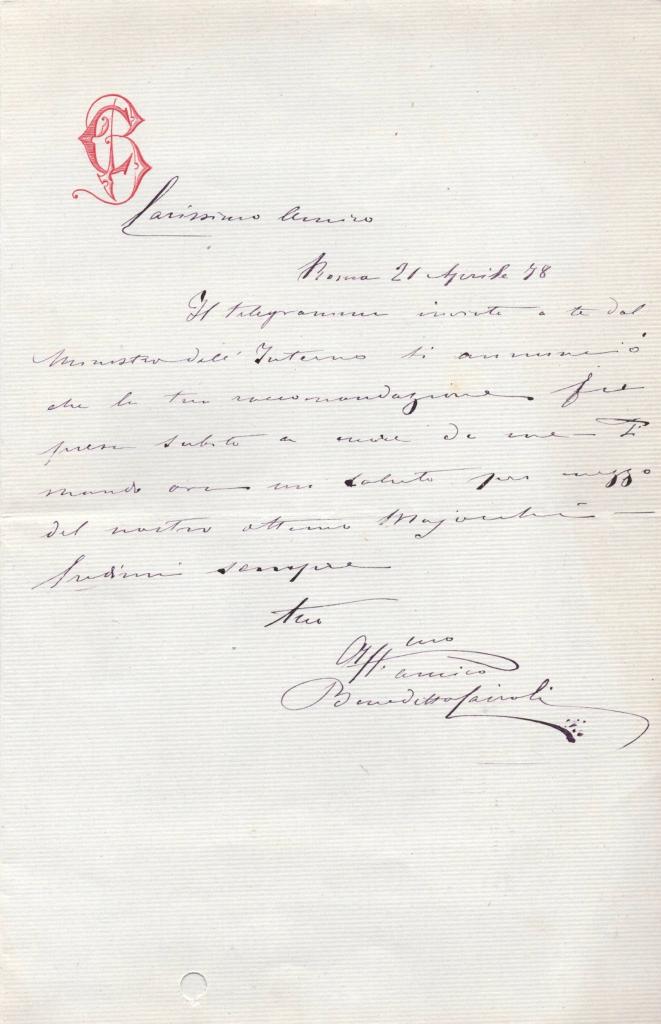 Carissimo Amico
Roma 21 Aprile 78
Il telegramma inviato a te dal
Ministro dell' Interno ti annunciò
che la tua raccomandazione fu
presa subito a cuore da me – Ti
mando ora un saluto per mezzo
del nostro ottimo Majocchi –
Credimi sempre
tuo
Aff mo
amico
Benedetto Cairoli